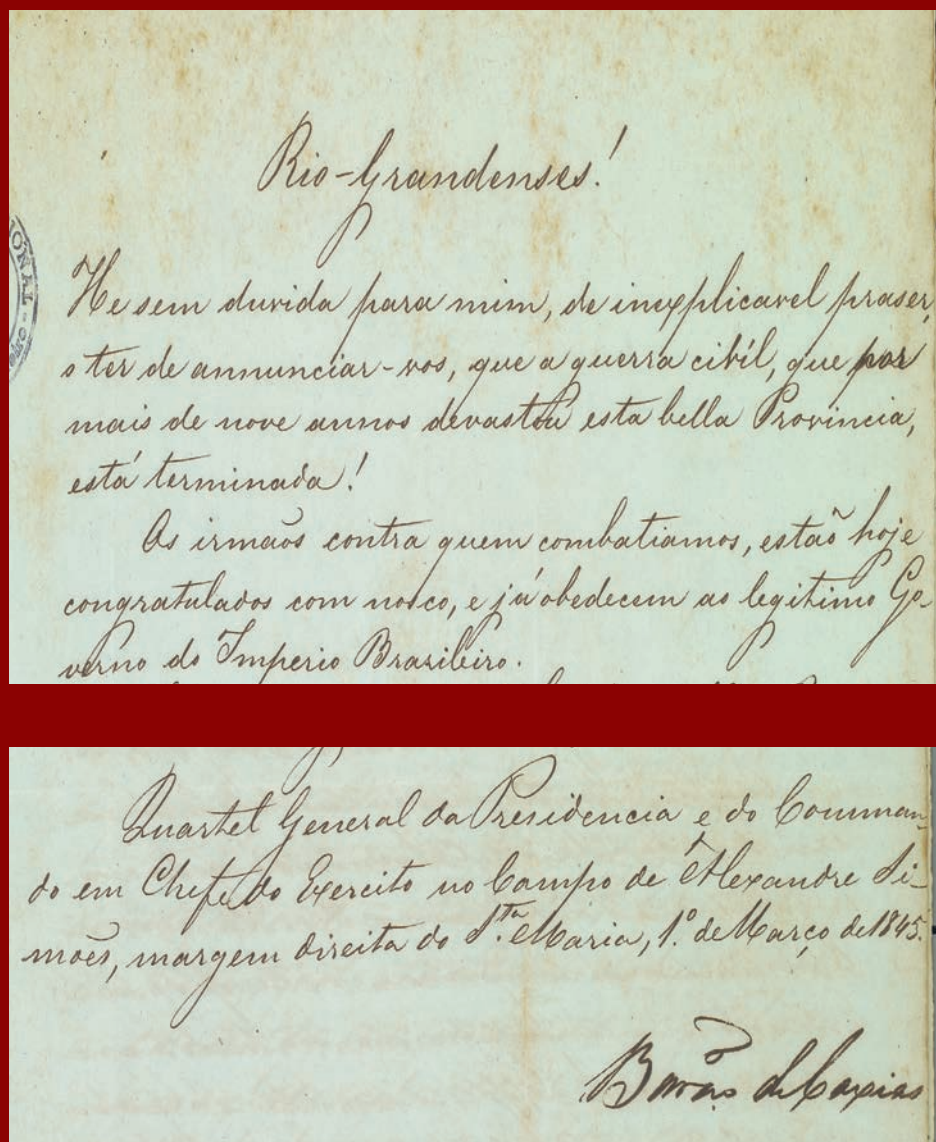 Rio-Grandenses!
IONAL
He sem duvida para mim, de inexplicavel praser,
o ter de annunciar-vos, que a guerra civíl, que por
mais de nove annos devastou esta bella Provincia,
está terminada!
Os irmãos contra quem combatiamos, estaõ hoje
congratulados com nosco, e já obedecem ao legitimo Go-
verno do Imperio Brasileiro.
Quartel General da Presidencia e do Comman-
do em Chefe do Exercito no Campo de Alexandre Si-
mões, margem direita do S.ta Maria, 1.º de Março de 1845.
Barão de Caxias